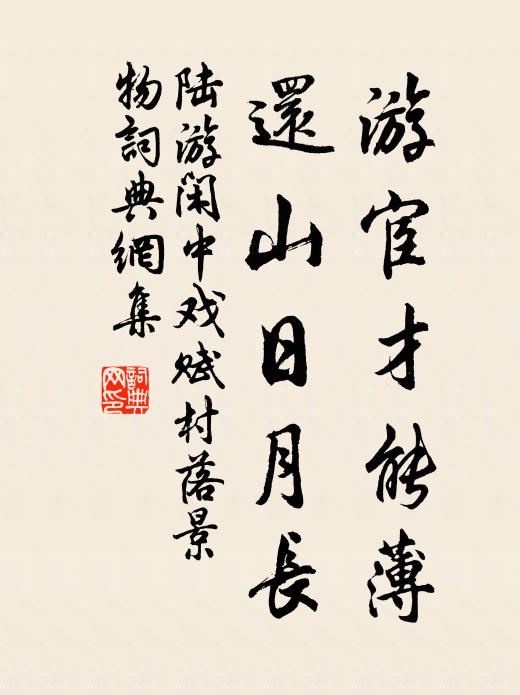 游宦才能薄
還山日月長
陆游閑中戏赋村落景
物詞典網集
詞典
网印